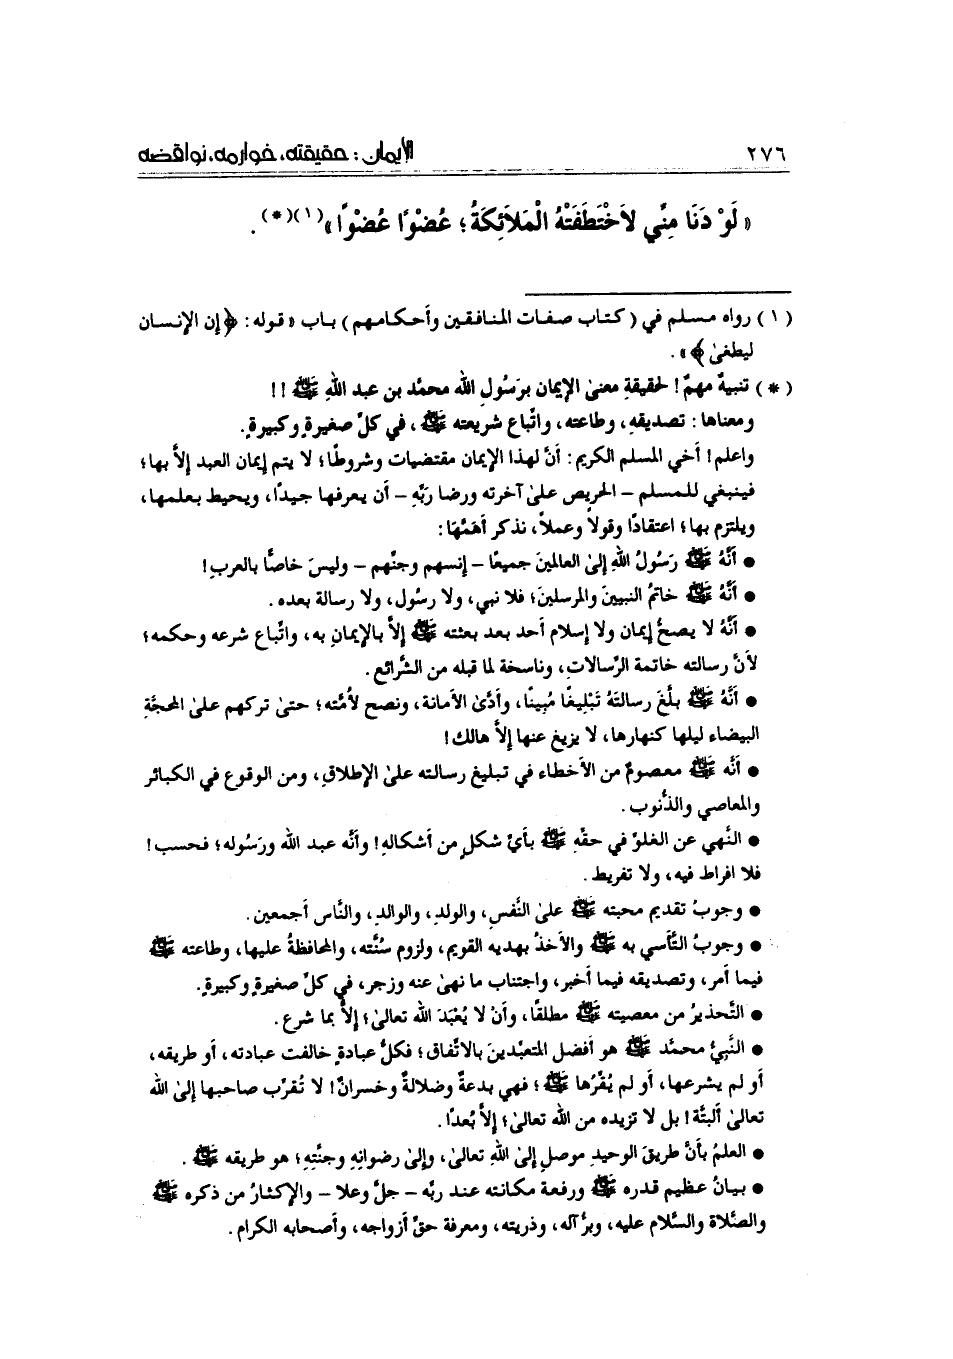 ٢٧٦
الإيمان : حقيقته، خوارمه، نواقضه
« لَوْ دَنَا مِنِّي لاَخْتَطَفَتْهُ الْمَلاَئِكَةُ ؛ عُضْوًا عُضْوًا »(١)(*) .
( ١ ) رواه مسلم في ( كتاب صفات المنافقين وأحكامهم ) باب « قوله : ﴿ إن الإنسان
ليطغىٰ ﴾ » .
( * ) تنبيهٌ مهمٌ ! لحقيقةِ معنىٰ الإيمان برَسُولِ الله محمَّد بن عبد اللهِ ﷺ !!
ومعناها : تصديقهِ ، وطاعته ، واتِّباع شريعته ﷺ ، في كلِّ صغيرةٍ وكبيرةٍ .
واعلم ! أخي المسلم الكريم : أنَّ لهذا الإيمان مقتضيات وشروطًا ؛ لا يتم إيمان العبد إلاَّ بها ؛
فينبغي للمسلم – الحريص علىٰ آخرته ورضا ربِّهِ – أن يعرفها جيدًا ، ويحيط بعلمها ،
ويلتزم بها ؛ اعتقادًا وقولاً وعملاً ، نذكر أهَمَّهَا :
● أنَّهُ ﷺ رَسُولُ اللهِ إلىٰ العالمينَ جميعًا – إنسهم وجنِّهم – وليسَ خاصًّا بالعربِ !
● أنَّهُ ﷺ خاتمُ النبيينَ والمرسلينَ ؛ فلا نبي ، ولا رسُول ، ولا رسالة بعده .
● أنَّهُ لا يصحُّ إيمان ولا إسلام أحد بعد بعثته ﷺ إلاَّ بالإيمانِ به ، واتِّباع شرعه وحكمه ؛
لأنَّ رسالته خاتمة الرِّسالاتِ ، وناسخة لما قبله من الشَّرائع .
● أنَّهُ ﷺ بلَّغَ رسالتَهُ تَبْلِيغًا مُبِينًا ، وأدَّىٰ الأمانة ، ونصح لأمَّته ؛ حتىٰ تركهم علىٰ المحجَّةِ
البيضاء ليلها كنهارها ، لا يزيغ عنها إلاَّ هالك !
● أنَّه ﷺ معصومٌ من الأخطاء في تبليغ رسالته علىٰ الإطلاقِ ، ومن الوقوع في الكبائر
والمعاصي والذُّنوب .
● النَّهي عن الغلوِّ في حقِّهِ ﷺ بأيِّ شكلٍ من أشكالهِ ! وأنَّه عبد الله ورَسُوله ؛ فحسب !
فلا افراط فيه ، ولا تفريط .
● وجوبُ تقديم محبته ﷺ علىٰ النَّفسِ ، والولدِ ، والوالدِ ، والنَّاس أجمعين .
● وجوبُ التَّأسي به ﷺ والأخذُ بهديه القويم ، ولزوم سُنَّته ، والمحافظةُ عليها ، وطاعته ﷺ
فيما أمر ، وتصديقه فيما أخبر ، واجتناب ما نهىٰ عنه وزجر ، في كلِّ صغيرةٍ وكبيرةٍ .
● التَّحذيرُ من معصيته ﷺ مطلقًا ، وأنْ لا يُعْبَدَ الله تعالىٰ ؛ إلاَّ بما شرع .
● النَّبيُّ محمَّد ﷺ هو أفضل المتعبِّدينَ بالاتِّفاق ؛ فكلُّ عبادةٍ خالفت عبادته ، أو طريقه ،
أو لم يشرعها ، أو لم يُقرُّها ﷺ ؛ فهي بدعةٌ وضلالةٌ وخسرانٌ ! لا تُقرِّب صاحبها إلىٰ الله
تعالىٰ ألبتَّة ! بل لا تزيده من الله تعالىٰ ؛ إلاَّ بُعدًا .
● العلمُ بأنَّ طريقَ الوحيدِ موصلِ إلىٰ اللهِ تعالىٰ ، وإلىٰ رضوانِهِ وجنَّتِهِ ؛ هو طريقه ﷺ .
● بيانُ عظيم قدره ﷺ ورفعة مكانته عند ربِّه – جلَّ وعلا – والإكثارُ من ذكره ﷺ
والصَّلاة والسَّلام عليه ، وبرُّ آله ، وذريته ، ومعرفة حقِّ أزواجه ، وأصحابه الكرام .